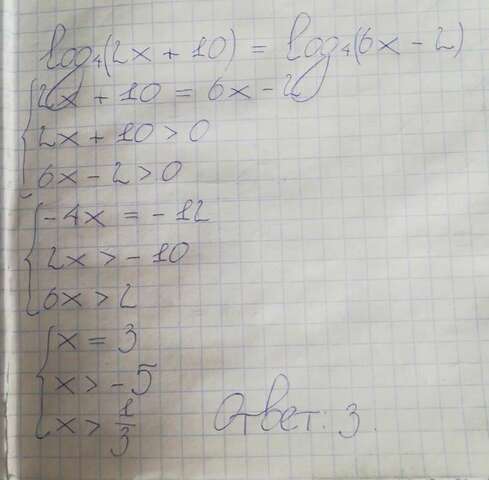 log₄(2x + 10) = log₄(6x - 2)
2x + 10 = 6x - 2
2x + 10 > 0
6x - 2 > 0
-4x = -12
2x > -10
6x > 2
x = 3
x > -5
x > 1/3
Ответ: 3.